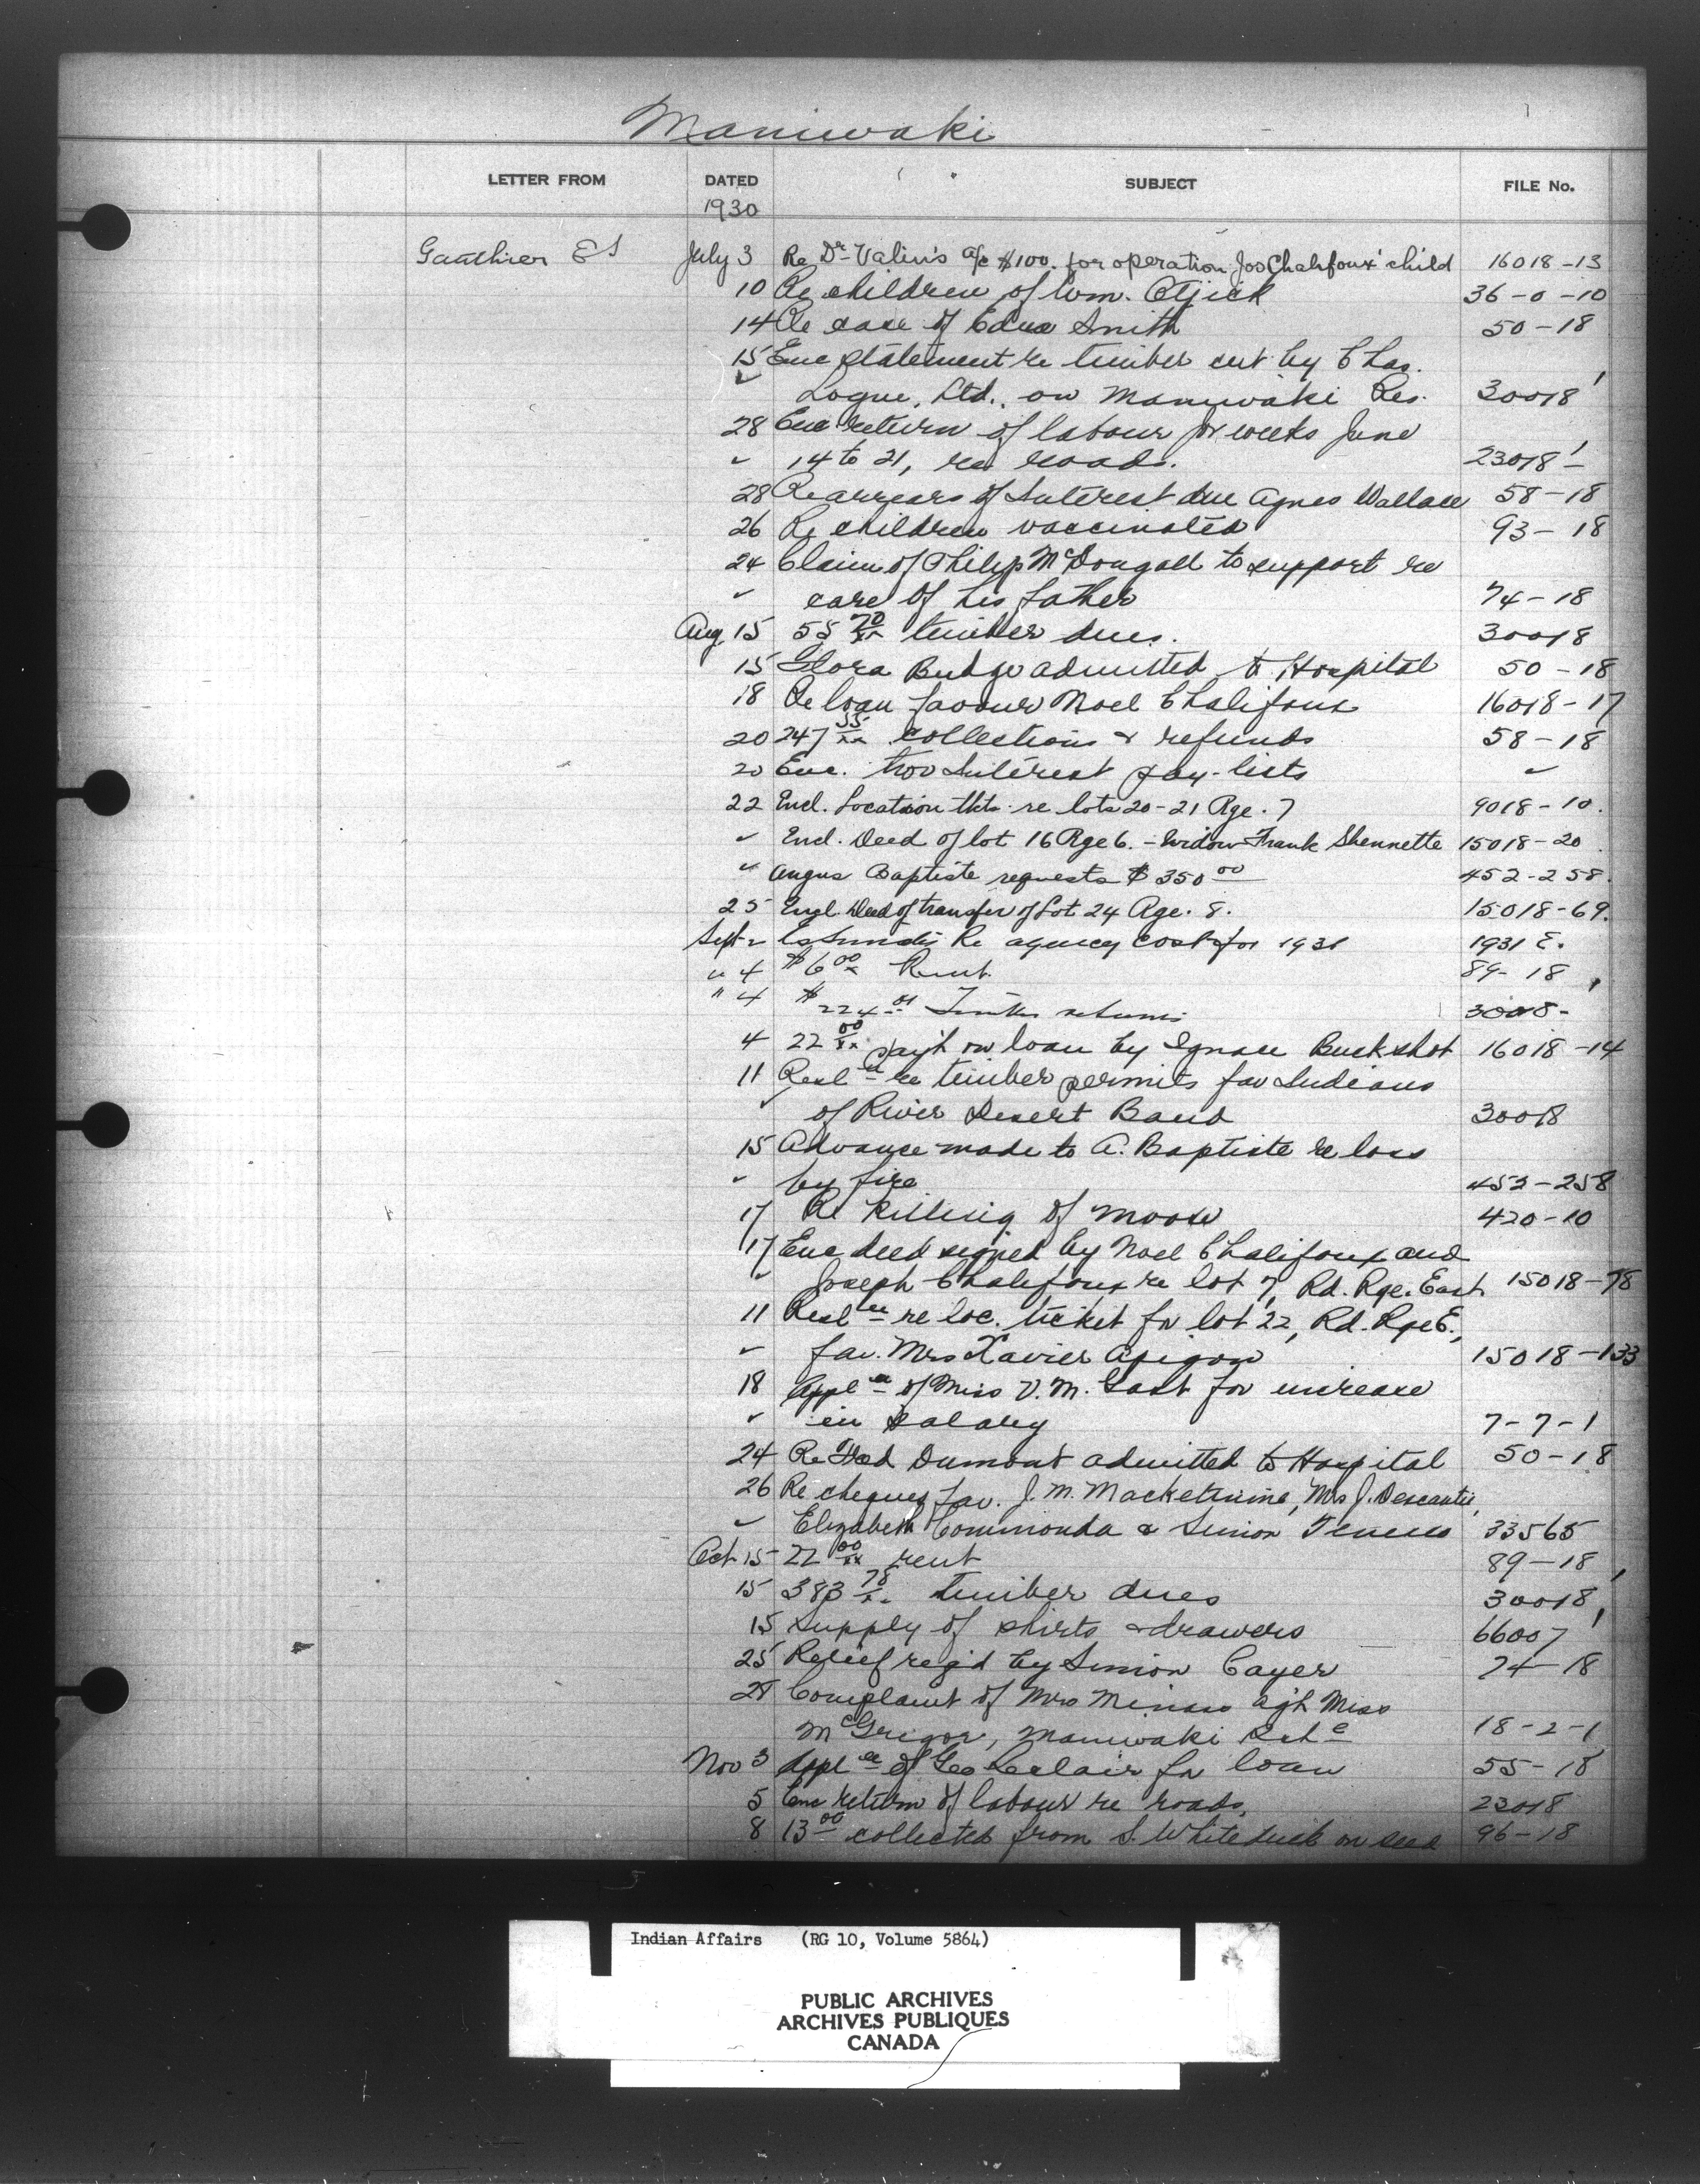 Maniwaki
LETTER FROM DATED SUBJECT FILE No.
1930
Gauthier E S July 3 Re Dr Valin's a/c $100. for operation Jos Chalifoux' child 16018-13
10 Re children of Wm. Otjick 36-0-10
14 Re case of Edna Smith 50-18
15 Enc statement re timber cut by Chas.
" Logue, Ltd., on Maniwaki Res. 30018
28 Enc return of labour for weeks June
" 14 to 21, re roads. 23018
28 Re arrears of Interest due Agnes Wallace 58-18
26 Re children vaccinated 93-18
24 Claim of Philip McDougall to support re
" care of his father 74-18
Aug 15 55 70/xx timber dues. 30018
15 Flora Budge admitted to Hospital 50-18
18 Re loan favour Noel Chalifoux 16018-17
20 247 55/xx collections & refunds 58-18
20 Enc. two Interest pay-lists "
22 Encl. Location tkts re lots 20-21 Rge. 7 9018-10.
" Encl. Deed of lot 16 Rge 6. - Widow Frank Shennette 15018-20
" Angus Baptiste requests $350 00 452-258.
25 Encl. Deed of transfer of Lot 24 Rge. 8. 15018-69.
Sept 2 Estimates Re agency cost for 1931 1931 E.
" 4 $6 00/xx Rent. 89-18
" 4 $224 01 Timber returns 30018-
4 22 00/xx pay't on loan by Ignace Buckshot 16018-14
11 Resl re timber permits fav Indians
" of River Desert Band 30018
15 Advance made to A. Baptiste re loss
" by fire 452-258
17 Re killing of moose 420-10
17 Enc deed signed by Noel Chalifoux and
" Joseph Chalifoux re lot 7, Rd. Rge. East 15018-78
11 Resl re loc. ticket for lot 22, Rd. Rge E.,
" fav. Mrs Xavier 15018-133
18 Appl of Miss V. M. for increase
" in salary 7-7-1
24 Re Dumont admitted to Hospital 50-18
26 Re cheques fav. J. M. Mrs J.
" Elizabeth Commonda & Simon 33565
Oct 15 22 00/xx rent 89-18
15 383 78/xx timber dues 30018
15 Supply of shirts & drawers 66007
25 Relief req'd by Simon Cayer 74-18
28 Complaint of Mrs ag't Miss
McGregor, Maniwaki 18-2-1
Nov 3 Appl of Geo Leclair for loan 55-18
5 Enc return of labour re roads. 23018
8 13 00 collected from S. Whiteduck on seed 96-18
Indian Affairs (RG 10, Volume 5864)
PUBLIC ARCHIVES
ARCHIVES PUBLIQUES
CANADA